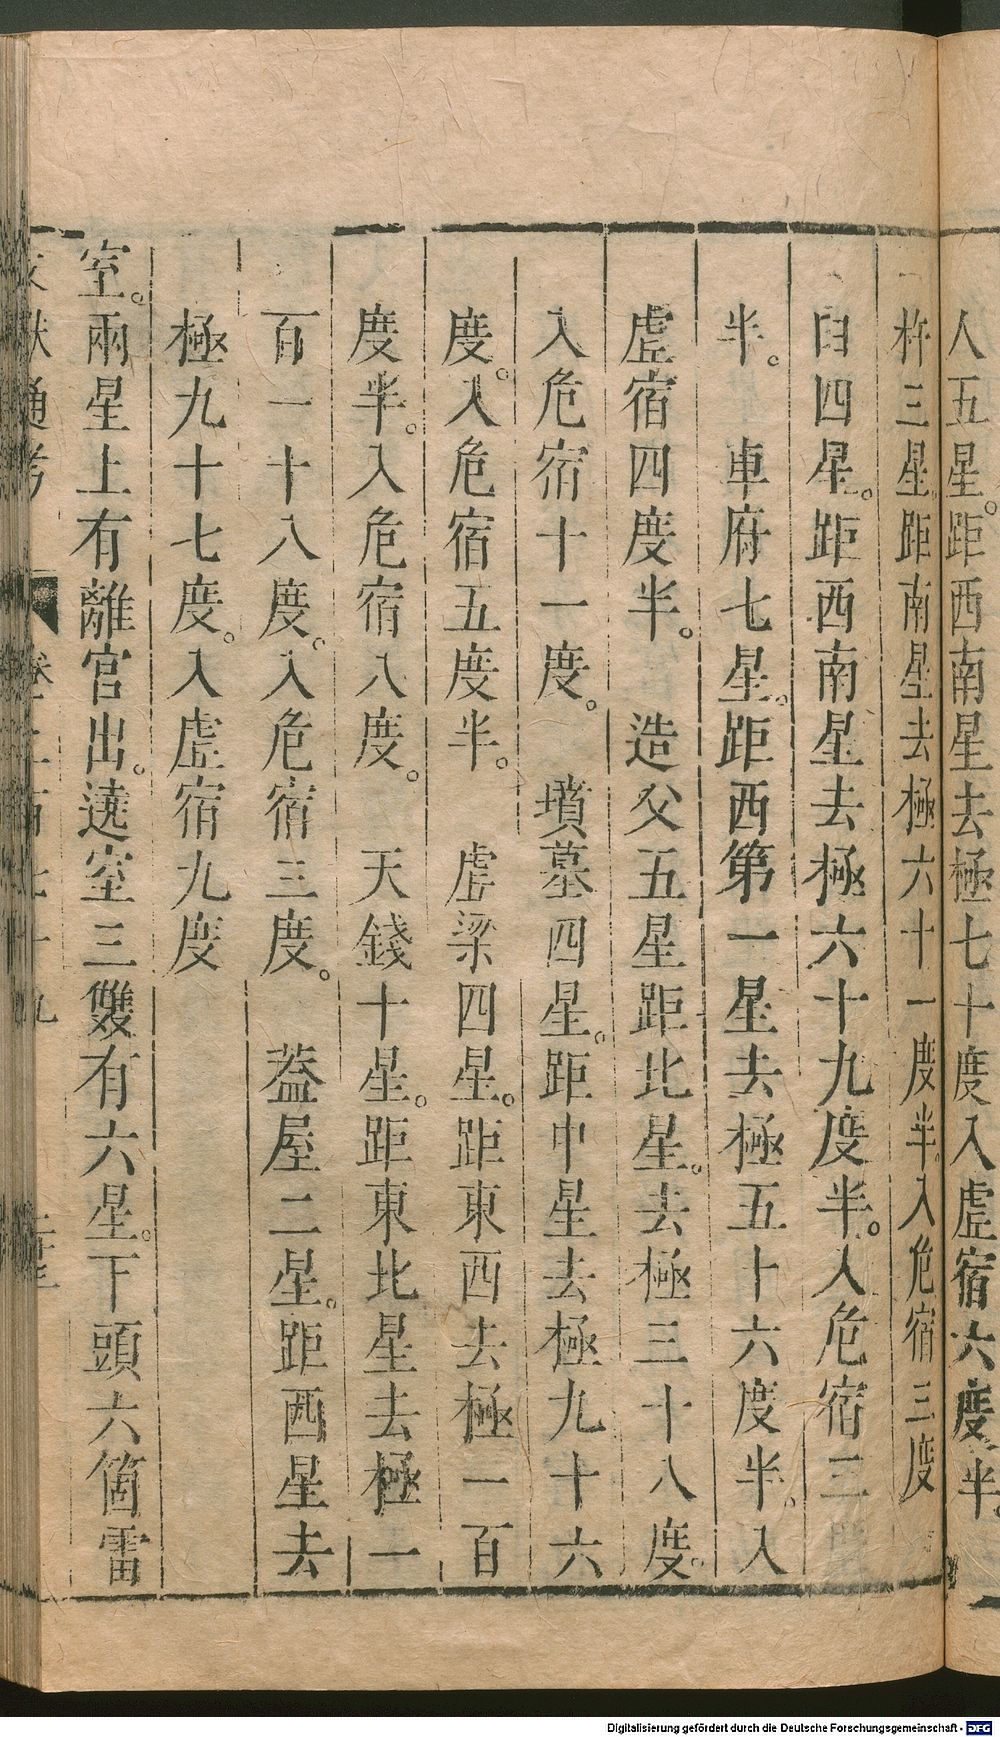 人五星。距西南星去極七十度入虛宿六度半。
杵三星。距南星去極六十一度半。入危宿三度
臼四星。距西南星去極六十九度半。入危宿三
半。　車府七星。距西第一星去極五十六度半。入
虛宿四度半。　造父五星距北星。去極三十八度。
入危宿十一度。　墳墓四星。距中星去極九十六
度。入危宿五度半。　虛梁四星。距東西去極一百
度半。入危宿八度。　天錢十星。距東北星去極一
百一十八度。入危宿三度。　蓋屋二星。距西星去
極九十七度。入虛宿九度
室。兩星上有離宮出。遶室三雙有六星。下頭六箇雷
文獻通考　卷二百七十九
Digitalisierung gefördert durch die Deutsche Forschungsgemeinschaft - DFG